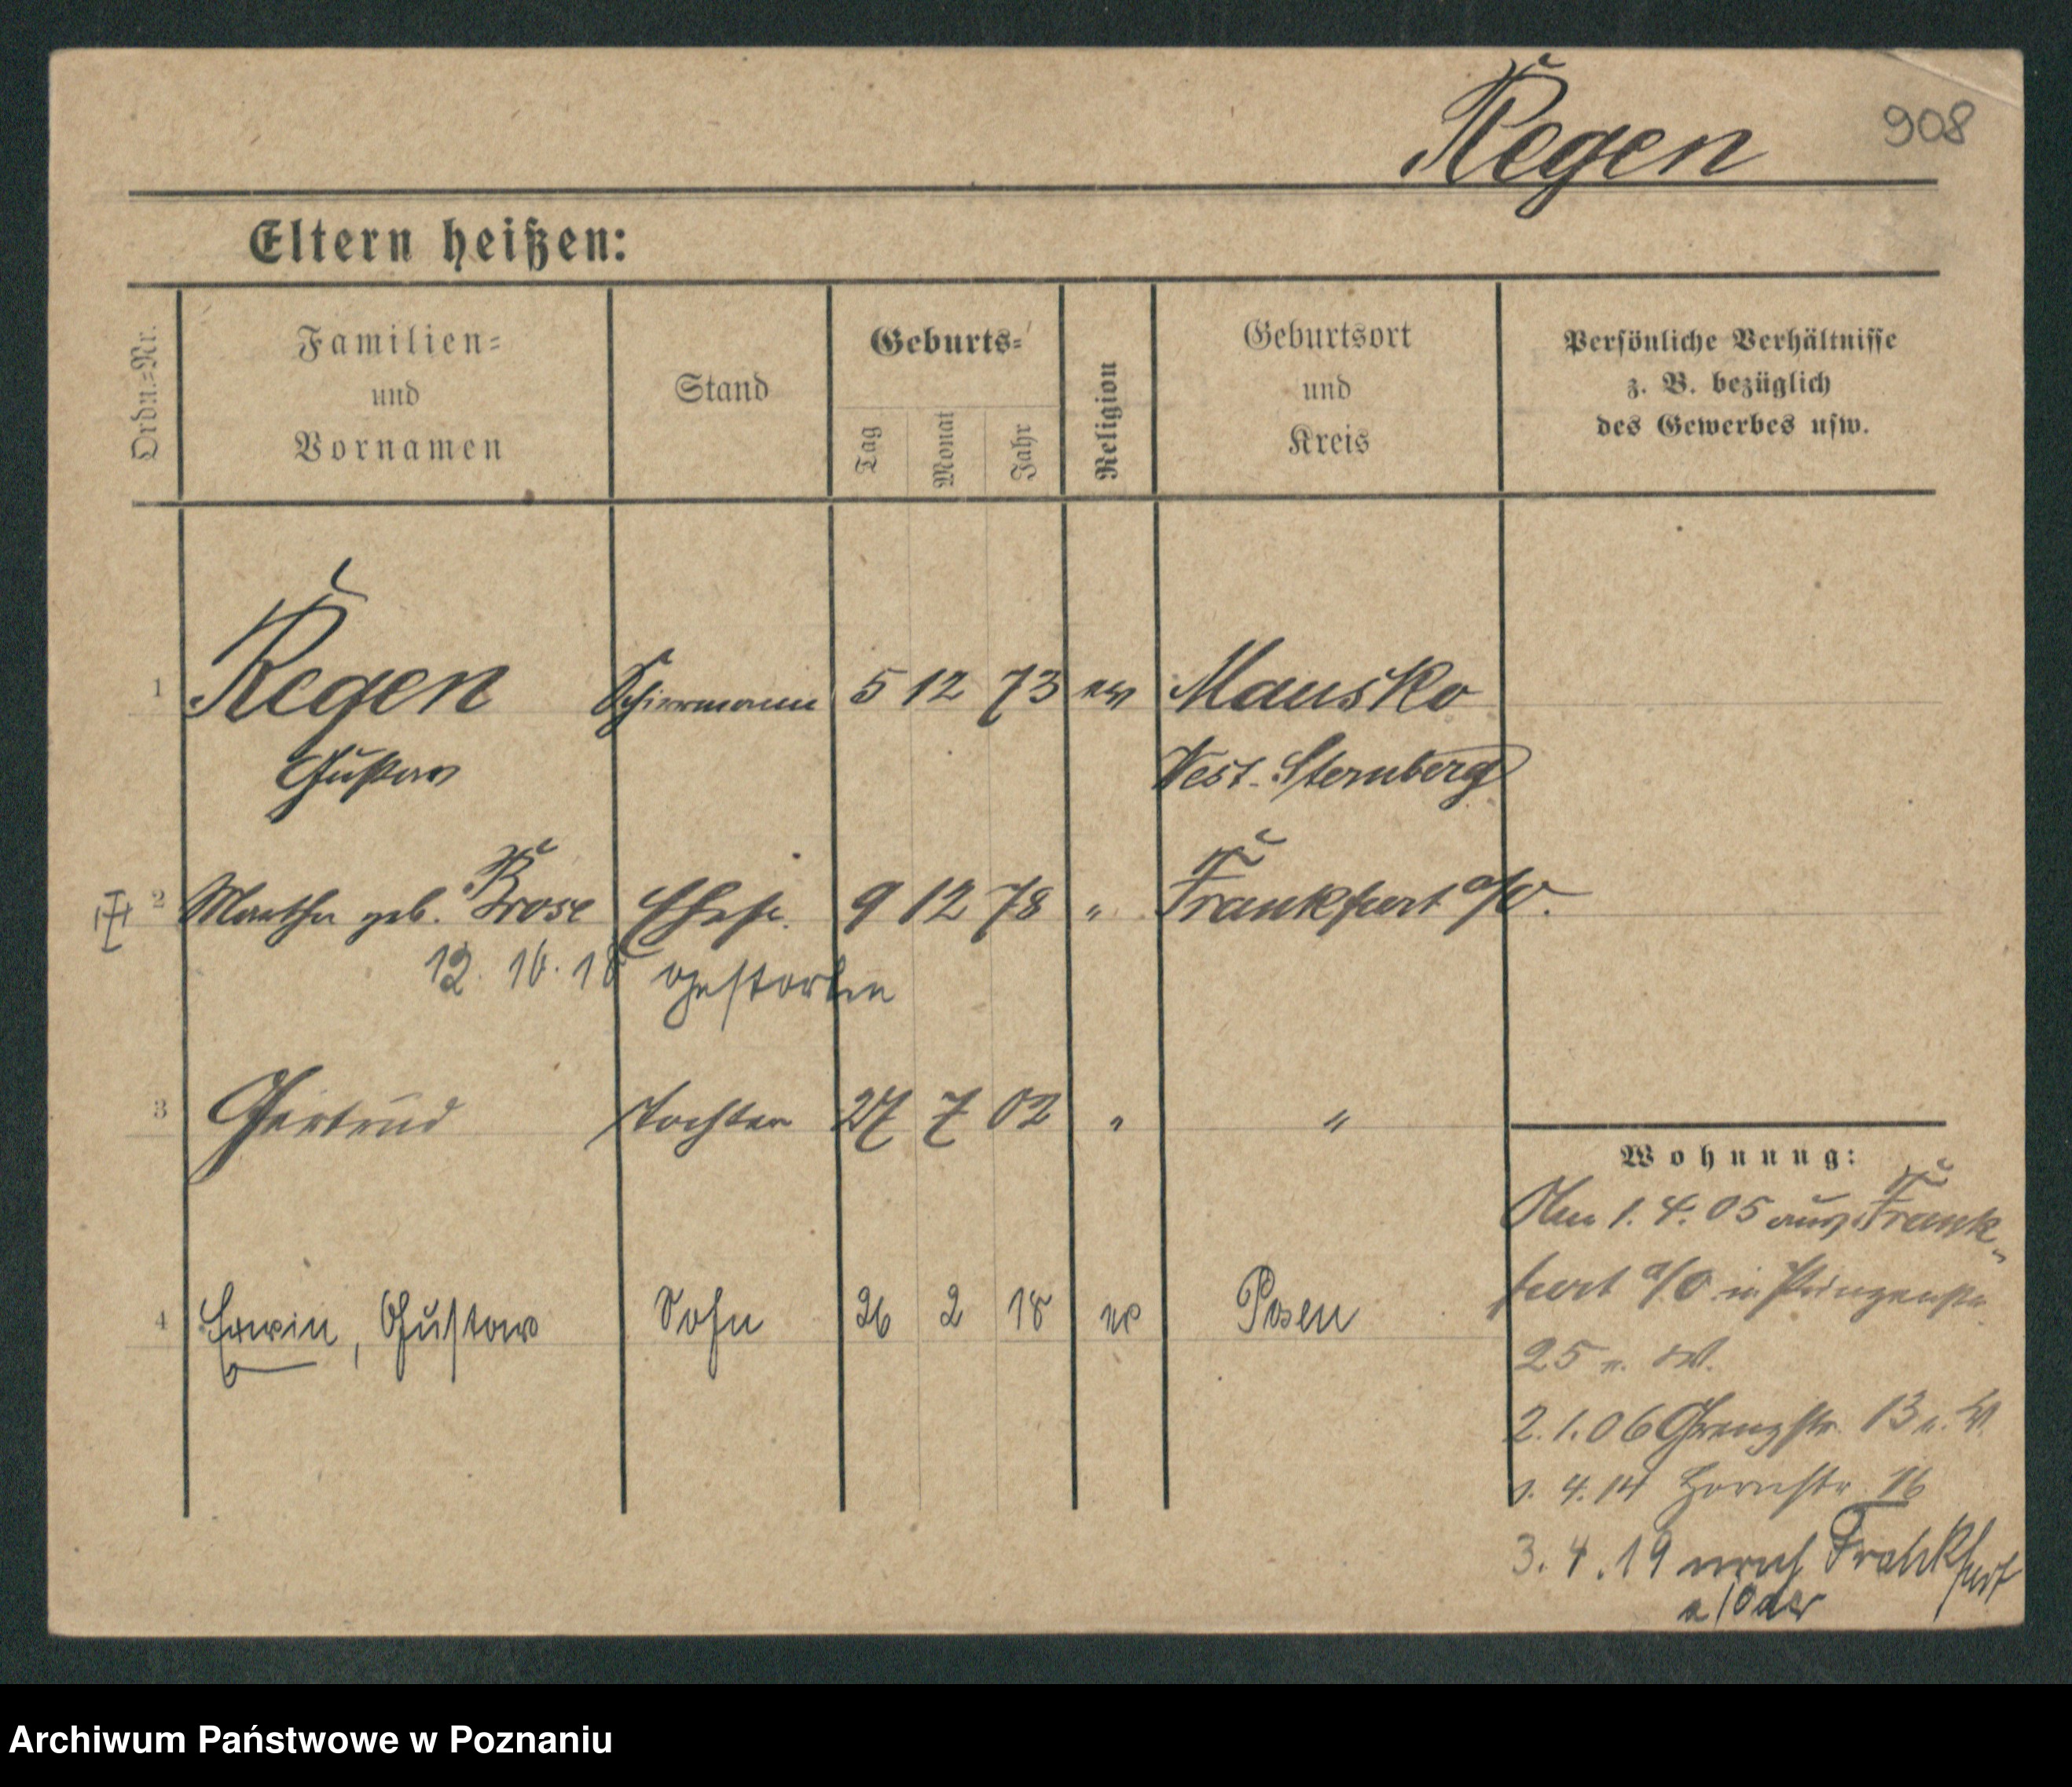 Regen 908
Eltern heißen:
Ordn.=Nr.
Familien=
und
Vornamen
Stand
Geburts=
Tag
Monat
Jahr
Religion
Geburtsort
und
Kreis
Persönliche Verhältnisse
z. B. bezüglich
des Gewerbes usw.
1 Regen Schirrmann 5 12 73 ev Mausko
Gustav West. Sternberg
2 Martha geb. Brose Ehefr. 9 12 78 " Frankfurt a/O.
12. 10. 18 gestorben
3 Gertrud Tochter 27 7 02 " "
4 Erwin, Gustav Sohn 26 2 18 ev Posen
Wohnung:
Am 1. 4. 05 aus Frank-
furt a/O in Prinzenstr.
25 n. W.
2. 1. 06 Grenzstr. 13 n. W.
1. 4. 14 16
3. 4. 19 nach Frankfurt
a/Oder
Archiwum Państwowe w Poznaniu